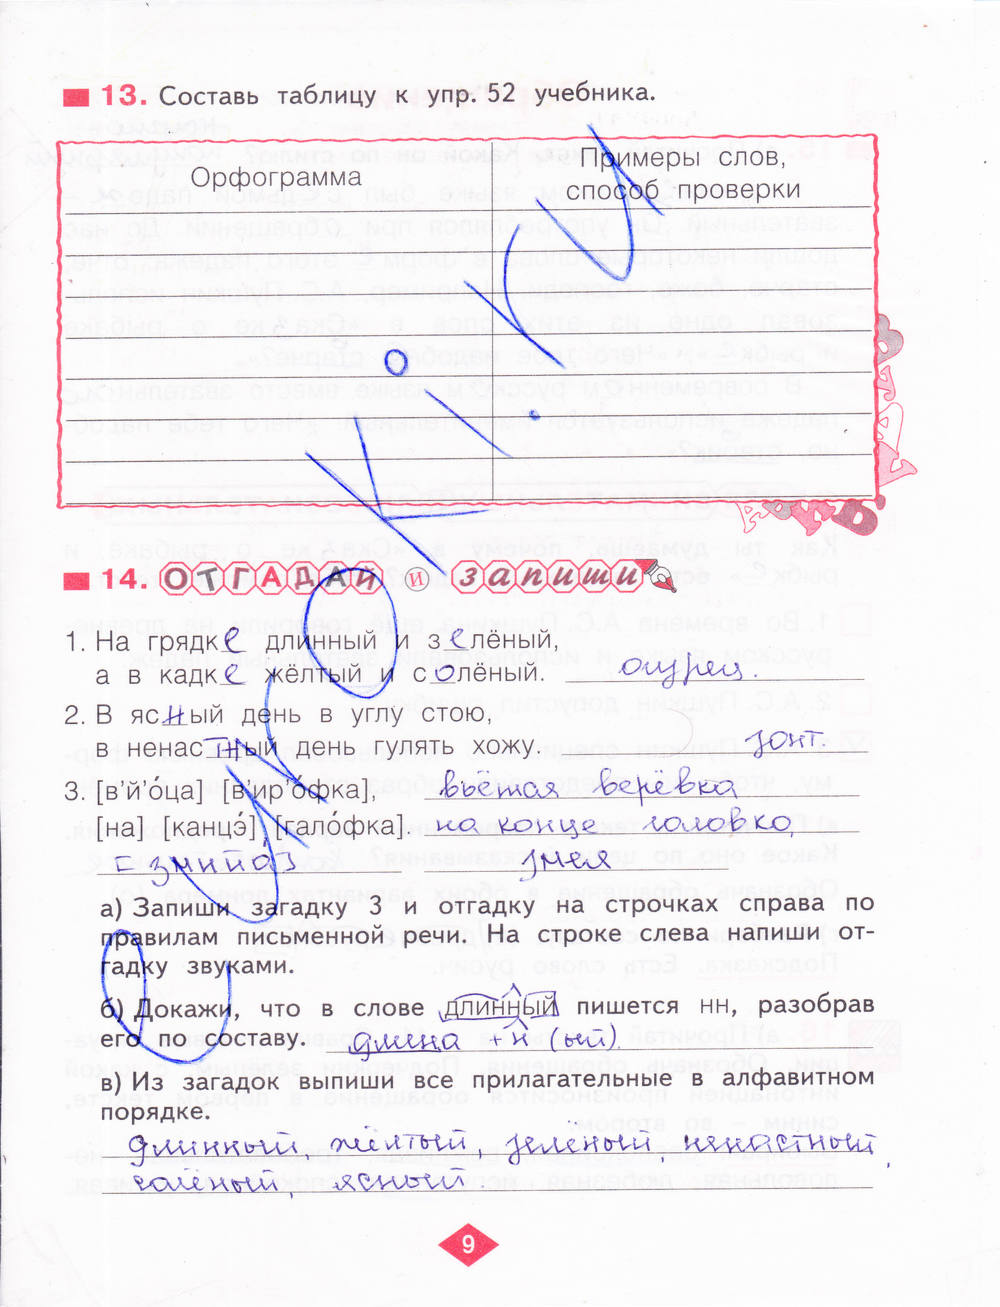 13. Составь таблицу к упр. 52 учебника.
Орфограмма
Примеры слов,
способ проверки
14. ОТГАДАЙ И запиши
1. На грядке длинный и зелёный,
а в кадке жёлтый и солёный. огурец.
2. В ясный день в углу стою,
в ненастный день гулять хожу. зонт
3. [в'й'о́ца] [в'ир'о́фка], вьётся верёвка
[на] [канцэ́] [гало́фка]. на конце головка
[змийа] змея
а) Запиши загадку 3 и отгадку на строчках справа по
правилам письменной речи. На строке слева напиши от-
гадку звуками.
б) Докажи, что в слове длинный пишется нн, разобрав
его по составу. длина + н (ый)
в) Из загадок выпиши все прилагательные в алфавитном
порядке.
длинный, жёлтый, зелёный, ненастный,
солёный, ясный.
9